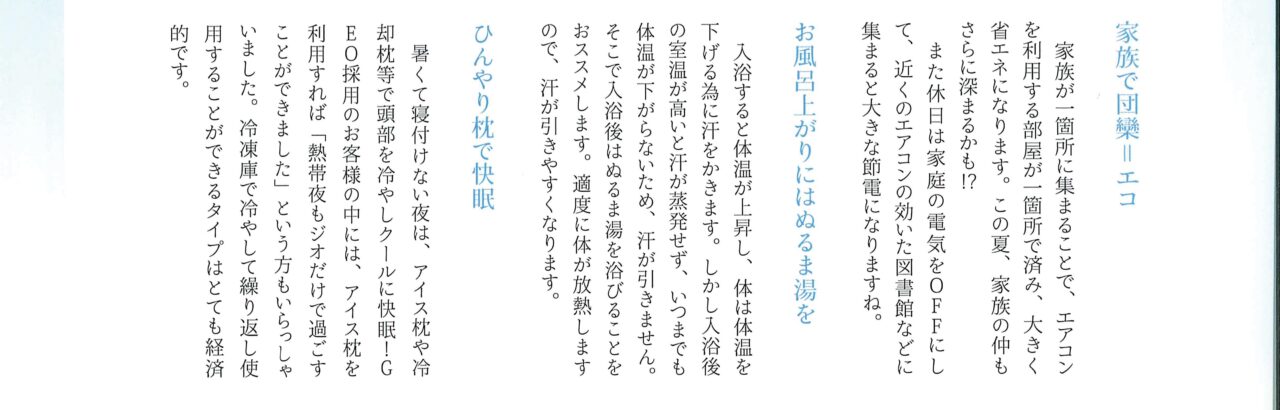 家族で団欒＝エコ
　家族が一箇所に集まることで、エアコン
を利用する部屋が一箇所で済み、大きく
省エネになります。この夏、家族の仲も
さらに深まるかも!?
　また休日は家庭の電気をＯＦＦにし
て、近くのエアコンの効いた図書館などに
集まると大きな節電になりますね。
お風呂上がりにはぬるま湯を
　入浴すると体温が上昇し、体は体温を
下げる為に汗をかきます。しかし入浴後
の室温が高いと汗が蒸発せず、いつまでも
体温が下がらないため、汗が引きません。
そこで入浴後はぬるま湯を浴びることを
おススメします。適度に体が放熱します
ので、汗が引きやすくなります。
ひんやり枕で快眠
　暑くて寝付けない夜は、アイス枕や冷
却枕等で頭部を冷やしクールに快眠！Ｇ
ＥＯ採用のお客様の中には、アイス枕を
利用すれば「熱帯夜もジオだけで過ごす
ことができました」という方もいらっしゃ
いました。冷凍庫で冷やして繰り返し使
用することができるタイプはとても経済
的です。